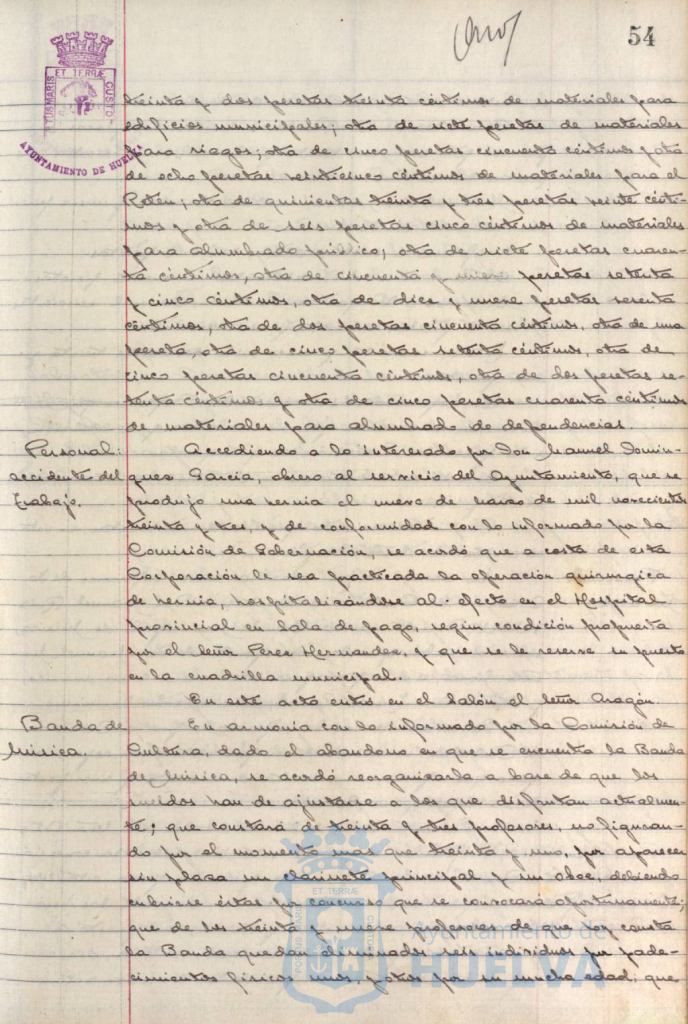 54
PORTUS MARIS ET TERRÆ CUSTODIA
AYUNTAMIENTO DE HUELVA
treinta y dos pesetas treinta céntimos de materiales para
edificios municipales; otra de siete pesetas de materiales
para riegos; otra de cinco pesetas cincuenta céntimos y otra
de ocho pesetas veinticinco céntimos de materiales para el
Retén; otra de quinientas treinta y tres pesetas veinte cénti-
mos y otra de seis pesetas cinco céntimos de materiales
para alumbrado público; otra de siete pesetas cuaren-
ta céntimos, otra de cincuenta y nueve pesetas setenta
y cinco céntimos, otra de diez y nueve pesetas sesenta
céntimos, otra de dos pesetas cincuenta céntimos, otra de una
peseta, otra de cinco pesetas setenta céntimos, otra de
cinco pesetas cincuenta céntimos, otra de dos pesetas se-
tenta céntimos y otra de cinco pesetas cuarenta céntimos
de materiales para alumbrado de dependencias.
Personal:
accidente del
trabajo.
Accediendo a lo interesado por Don Manuel Domin-
guez García, obrero al servicio del Ayuntamiento, que se
produjo una hernia el nueve de marzo de mil novecientos
treinta y tres, y de conformidad con lo informado por la
Comisión de Gobernación, se acordó que a costa de esta
Corporación le sea practicada la operación quirurgica
de hernia, hospitalizándose al efecto en el Hospital
Provincial en Sala de pago, según condición propuesta
por el Señor Perez Hernandez, y que se le reserve su puesto
en la cuadrilla municipal.
En este acto entró en el Salón el Señor Aragón.
Banda de
Música.
En armonía con lo informado por la Comisión de
Cultura, dado el abandono en que se encuentra la Banda
de Música, se acordó reorganizarla a base de que los
sueldos han de ajustarse a los que disfrutan actualmen-
te; que constará de treinta y tres profesores, no figuran-
do por el momento más que treinta y uno, por aparecer
sin plaza un clarinete principal y un oboe, debiendo
cubrirse éstas por concurso que se convocará oportunamente;
que de los treinta y nueve profesores de que hoy consta
la Banda quedan eliminados seis individuos por pade-
cimientos físicos unos, y otros por su mucha edad; que
PORTUS MARIS ET TERRÆ CUSTODIA
Ayuntamiento de
HUELVA